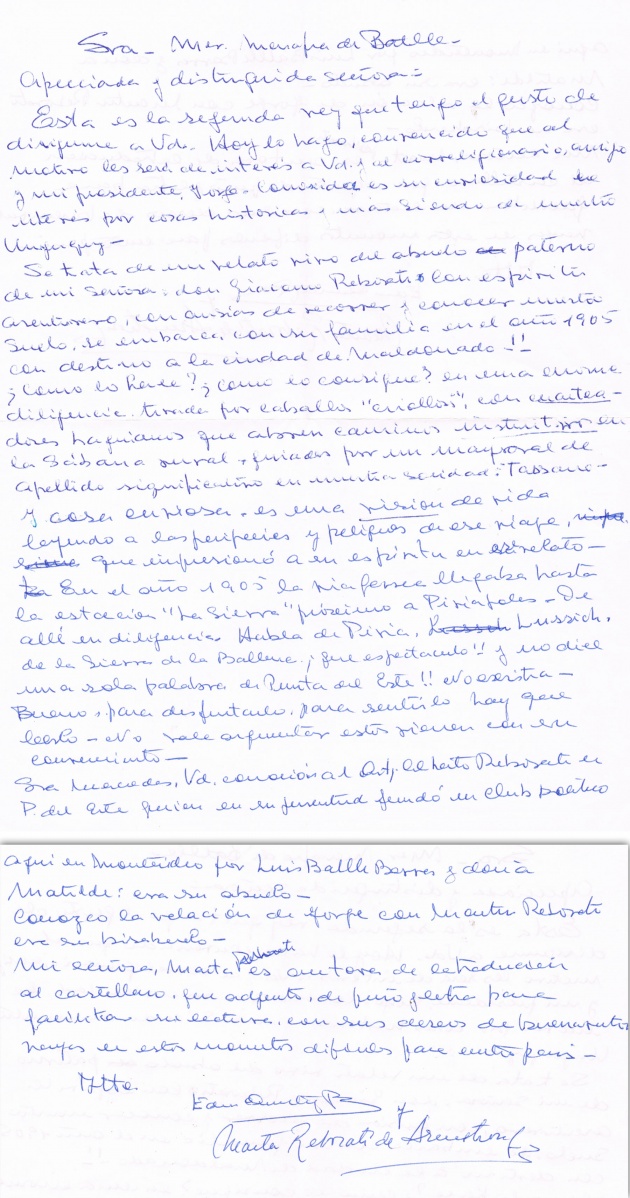 Sra - Mer. Menafra de Batlle -
Apreciada y distinguida señora =
Esta es la segunda vez que tengo el gusto de
dirigirme a Vd. Hoy lo hago, convencido que el
motivo les será de interés a Vd. y al correligionario, amigo
y mi presidente, Jorge. Conocida es su curiosidad e
interés por cosas históricas y más siendo de nuestro
Uruguay -
Se trata de un relato vivo del abuelo paterno
de mi señora: don Giacomo Reborati. Con espíritu
aventurero, con ansias de recorrer y conocer nuestro
suelo, se embarca con su familia en el año 1905
con destino a la ciudad de Maldonado!!
¿Como lo hace? ¿Como lo consigue? en una enorme
diligencia tirada por caballos "criollos", con cuartea-
dores baquianos que abren caminos en
la Sábana rural, guiados por un mayoral de
apellido significativo en nuestra sociedad: Tassano -
Y cosa curiosa - es una vision de vida
leyendo a las peripecias y peligros de ese viaje,
que impresionó a su espíritu en el relato -
En el año 1905 la via ferrea llegaba hasta
la estacion "La Sierra" próximo a Piriapolis - De
allí en diligencia. Habla de Piria, Lussich,
de la Sierra de la Ballena. ¡que espectaculo!! y no dice
una sola palabra de Punta del Este!! No existia -
Bueno, para disfrutarlo, para sentirlo hay que
leerlo - No vale argumentar
Sra Mercedes, Vd. conoció al Arq. Alberto Reborati en
P. del Este quien en su juventud fundó un club político
aqui en Montevideo por Luis Batlle Berres y doña
Matilde: era su abuelo -
Conozco la relación de Jorge con Martin Reborati
era su bisabuelo -
Mi señora, Marta Reborati es autora de la traducción
al castellano, que adjunto, de puño y letra para
facilitar su lectura, con sus deseos de buenaventura
en estos momentos difíciles para nuestro pais -
Atte.
y
Marta Reborati de Armstrong